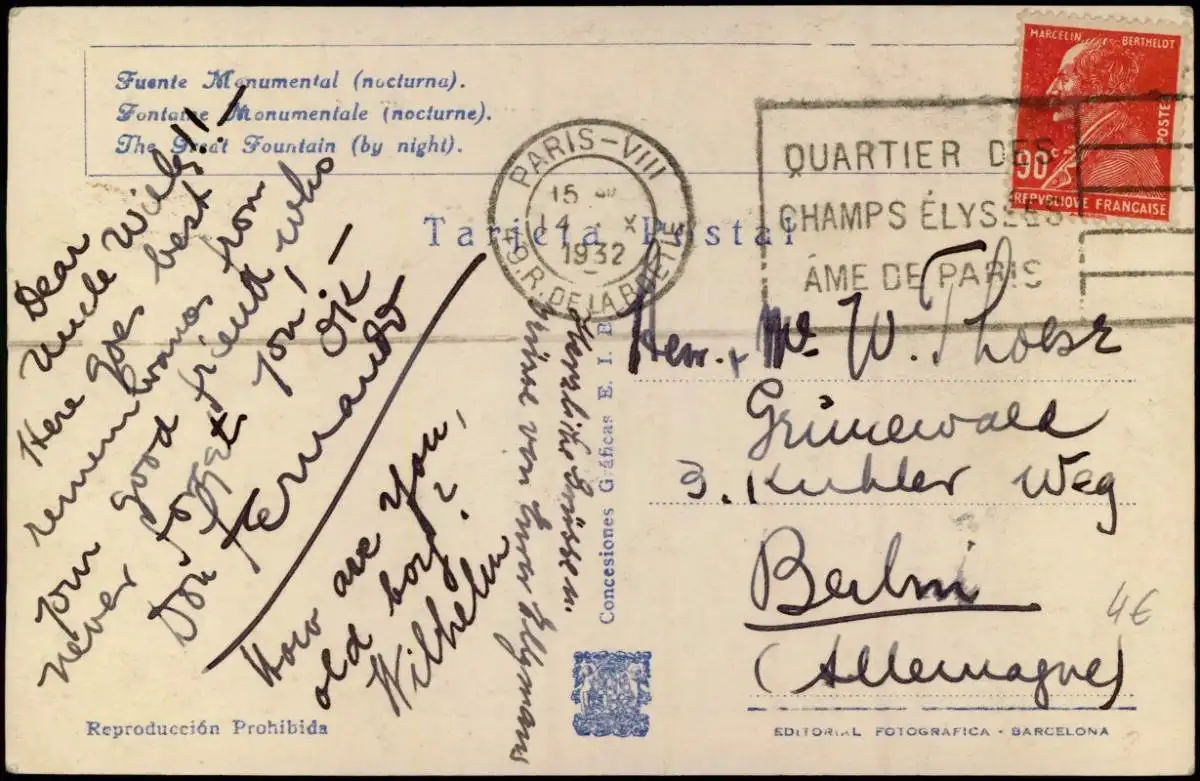 Fuente Monumental (nocturna).
Fontaine Monumentale (nocturne).
The Great Fountain (by night).
Tarjeta Postal
PARIS-VIII
15
14 X
1932
R. DE LA BOETIE
QUARTIER DES
CHAMPS ÉLYSÉES
ÂME DE PARIS
MARCELIN BERTHELOT
POSTES
90c
REPVBLIQVE FRANÇAISE
Dear
Uncle Willy!!!
Here goes best
remembrances from
your good friend who
never forget you!
Don Ojk
Fernando
How are you,
old boy?
Wilhelm
Herzliche Grüsse
Grüsse von
Concesiones Gráficas E. I. B
Herr + Me W.
Grünewald
3. Kuhler Weg
Berlin
(Allemagne)
4€
Reproducción Prohibida
EDITORIAL FOTOGRÁFICA - BARCELONA